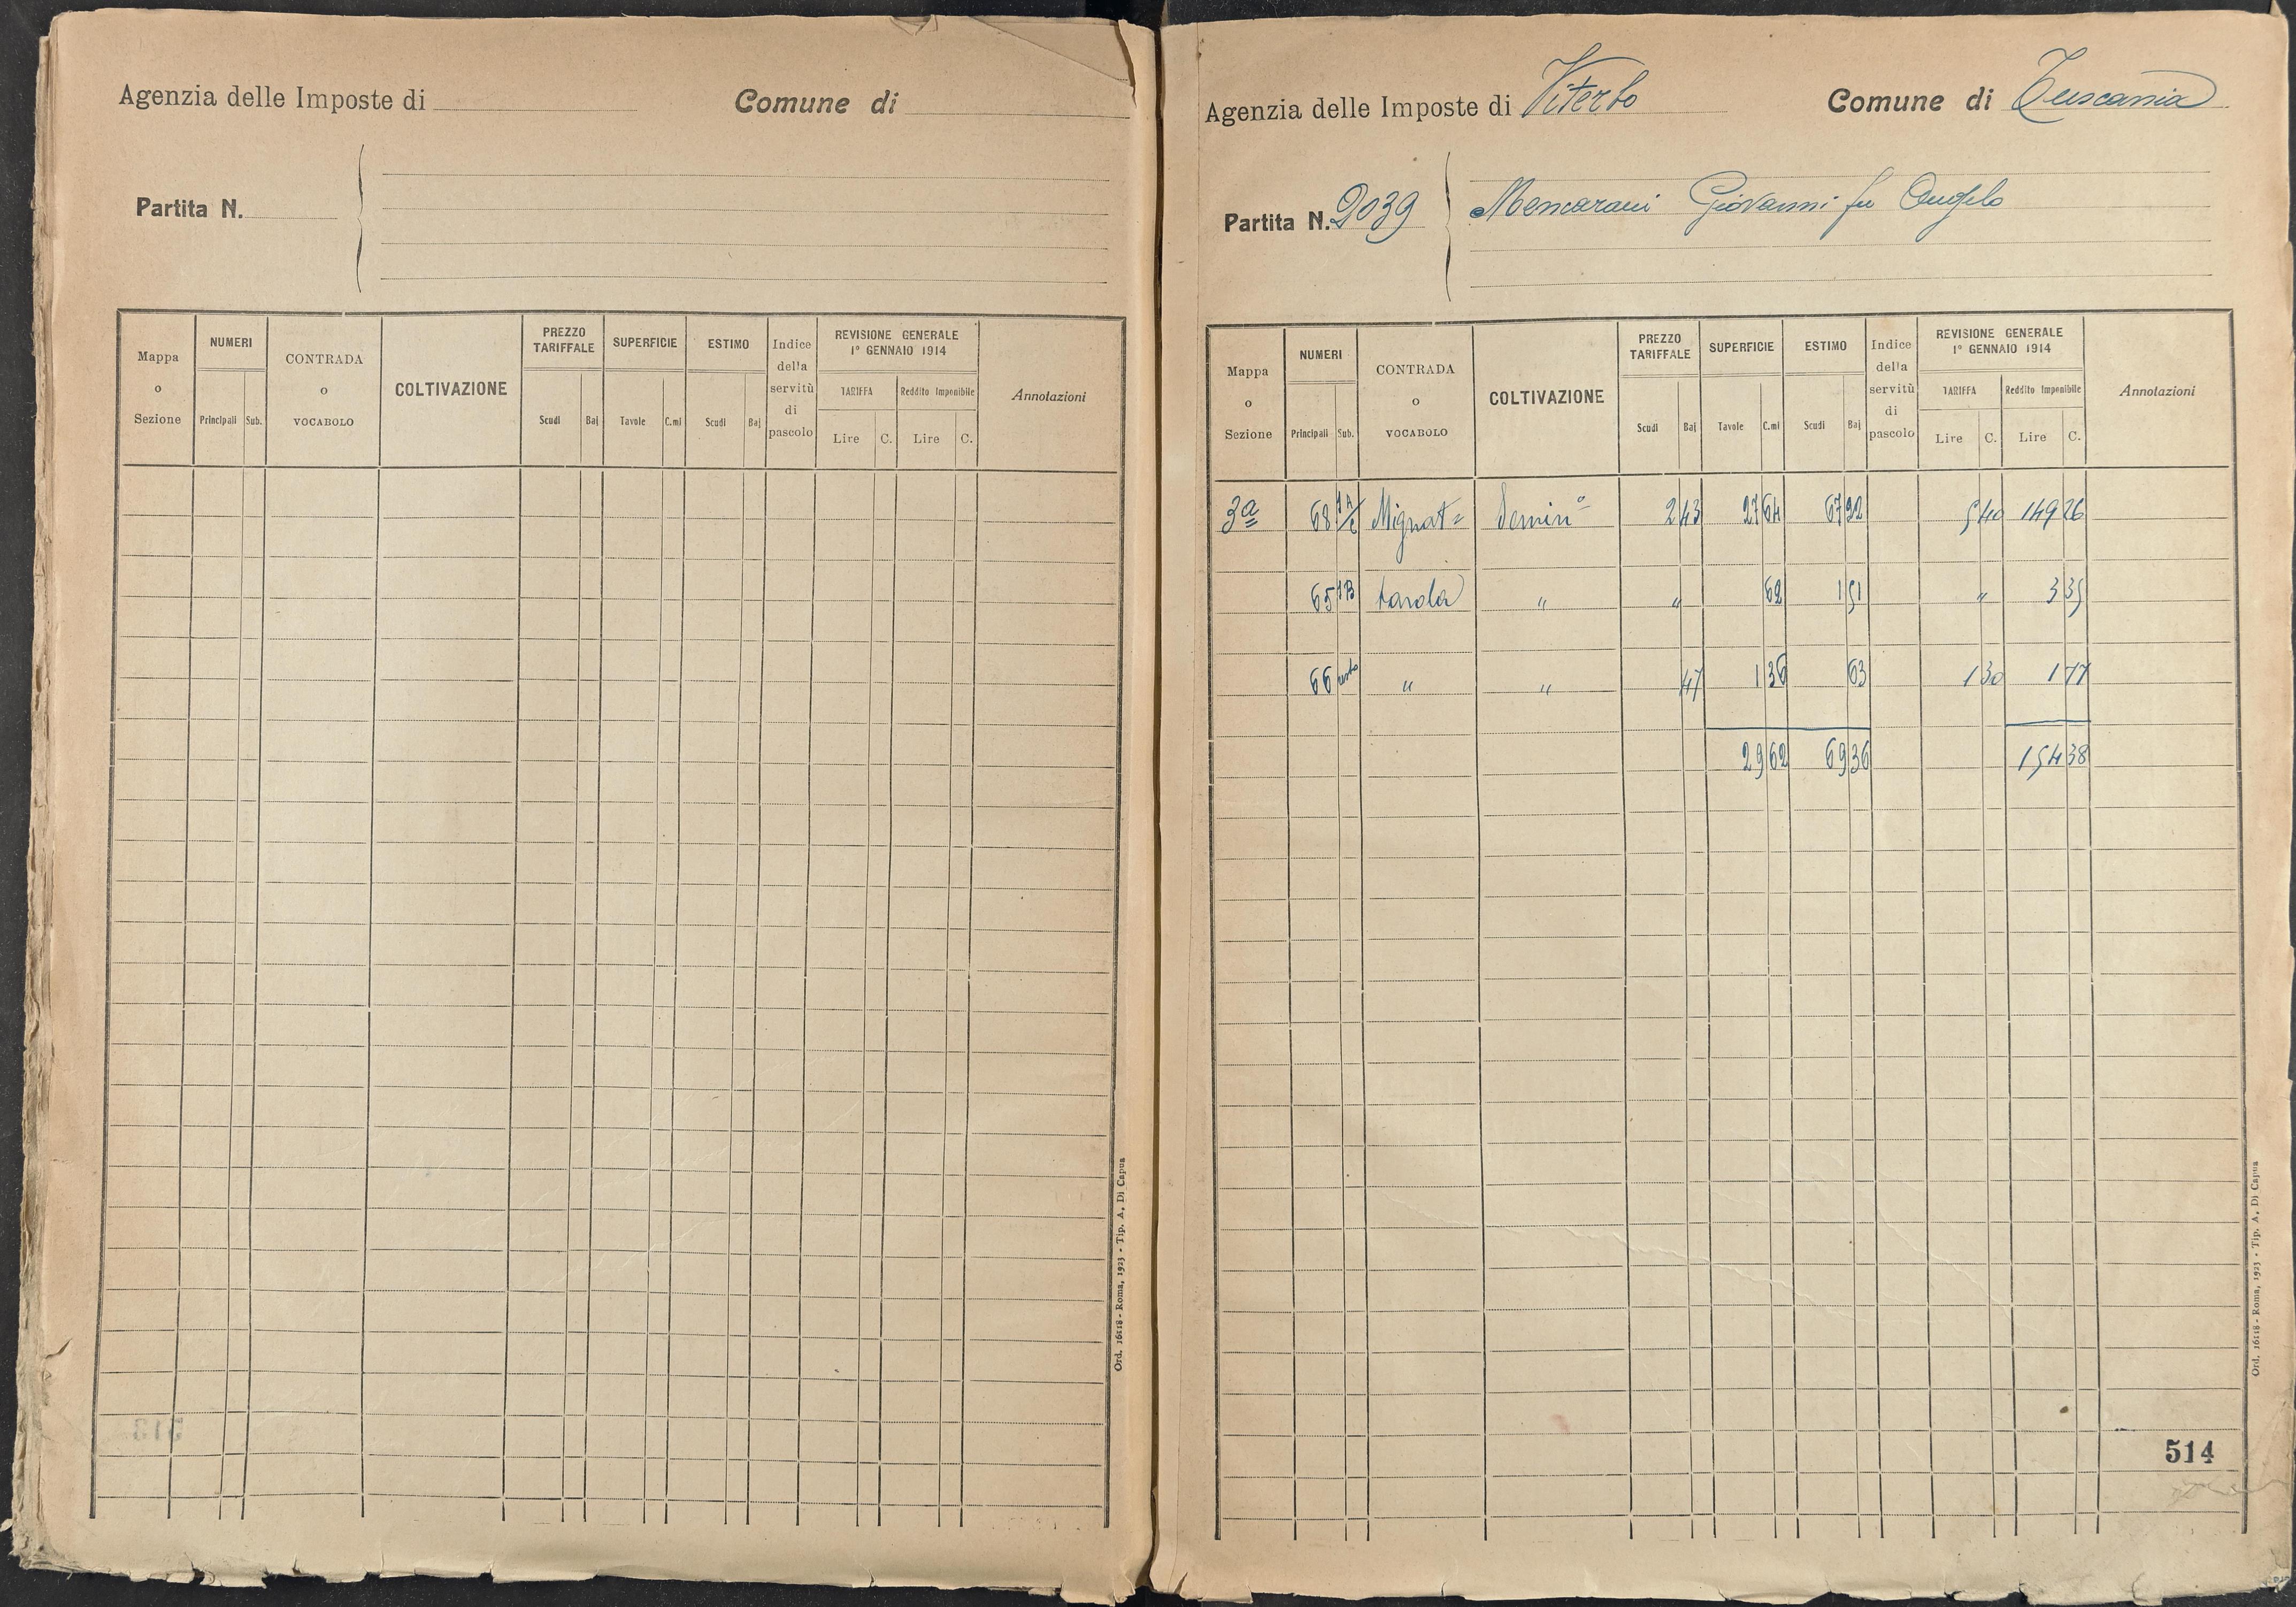 Agenzia delle Imposte di
Comune di
Partita N.
Mappa o Sezione
NUMERI
Principali Sub.
CONTRADA o VOCABOLO
COLTIVAZIONE
PREZZO TARIFFALE
Scudi Baj
SUPERFICIE
Tavole C.mi
ESTIMO
Scudi Baj
Indice della servitù di pascolo
REVISIONE GENERALE
1° GENNAIO 1914
TARIFFA Reddito Imponibile
Lire C. Lire C.
Annotazioni
Ord. 16118 - Roma, 1923 - Tip. A. Di Capua
Agenzia delle Imposte di Viterbo
Comune di Tuscania
Partita N. 2039
Mencarani Giovanni fu Angelo
Mappa o Sezione
NUMERI
Principali Sub.
CONTRADA o VOCABOLO
COLTIVAZIONE
PREZZO TARIFFALE
Scudi Baj
SUPERFICIE
Tavole C.mi
ESTIMO
Scudi Baj
Indice della servitù di pascolo
REVISIONE GENERALE
1° GENNAIO 1914
TARIFFA Reddito Imponibile
Lire C. Lire C.
Annotazioni
3a 68 Mignat= Semin° 2 43 27 64 67 22 5 40 149 26
65 1B tarola " " 62 1 51 " 3 35
66 resto " " 47 1 36 63 1 30 1 77
29 62 69 36 154 38
514
Ord. 16118 - Roma, 1923 - Tip. A. Di Capua